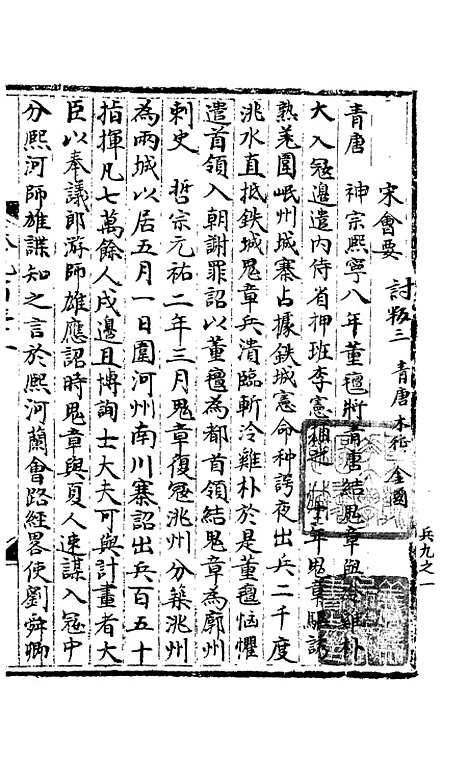 宋會要　討叛三　青唐　木征　金國
青唐　神宗熙寧八年董氊將青唐結鬼章與冷雞朴
大入寇邊遣内侍省押班李憲　年鬼章驅誘
熟羗圍岷州城寨占據鉄城憲命种諤夜出兵二千度
洮水直抵鉄城鬼章兵潰臨斬冷雞朴於是董氊惱懼
遣首領入朝謝罪詔以董氊為都首領結鬼章為廓州
刺史　哲宗元祐二年三月鬼章復寇洮州分築洮州
為兩城以居五月一日圍河州南川寨詔出兵百五十
指揮凡七萬餘人戍邊且博詢士大夫可與計畫者大
臣以奉議郎游師雄應詔時鬼章與夏人連謀入寇中
分熙河師雄諜知之言於熙河蘭會路經畧使劉舜卿
兵九之一